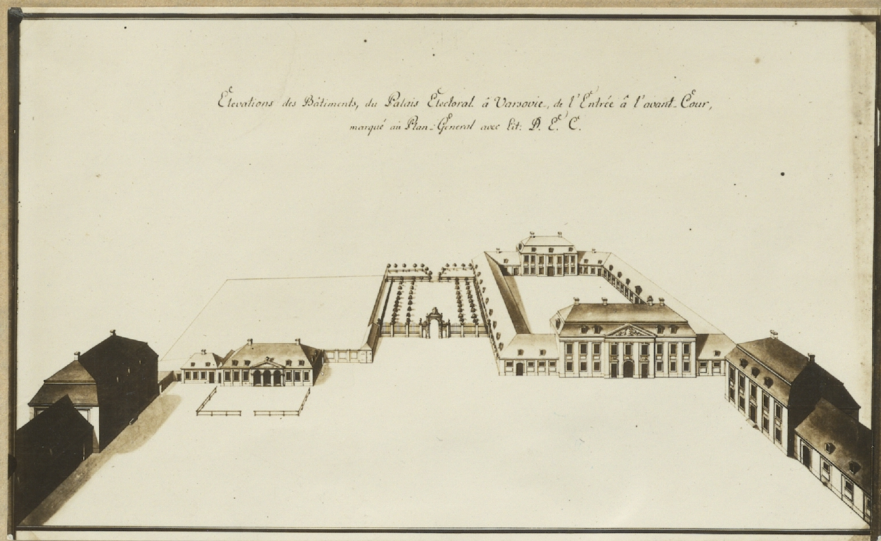 Elevations des Bâtiments, du Palais Electoral â Varsovie, de l'Entrée â l'avant-Cour,
marqué au Plan-General avec Lit. D. E. C.